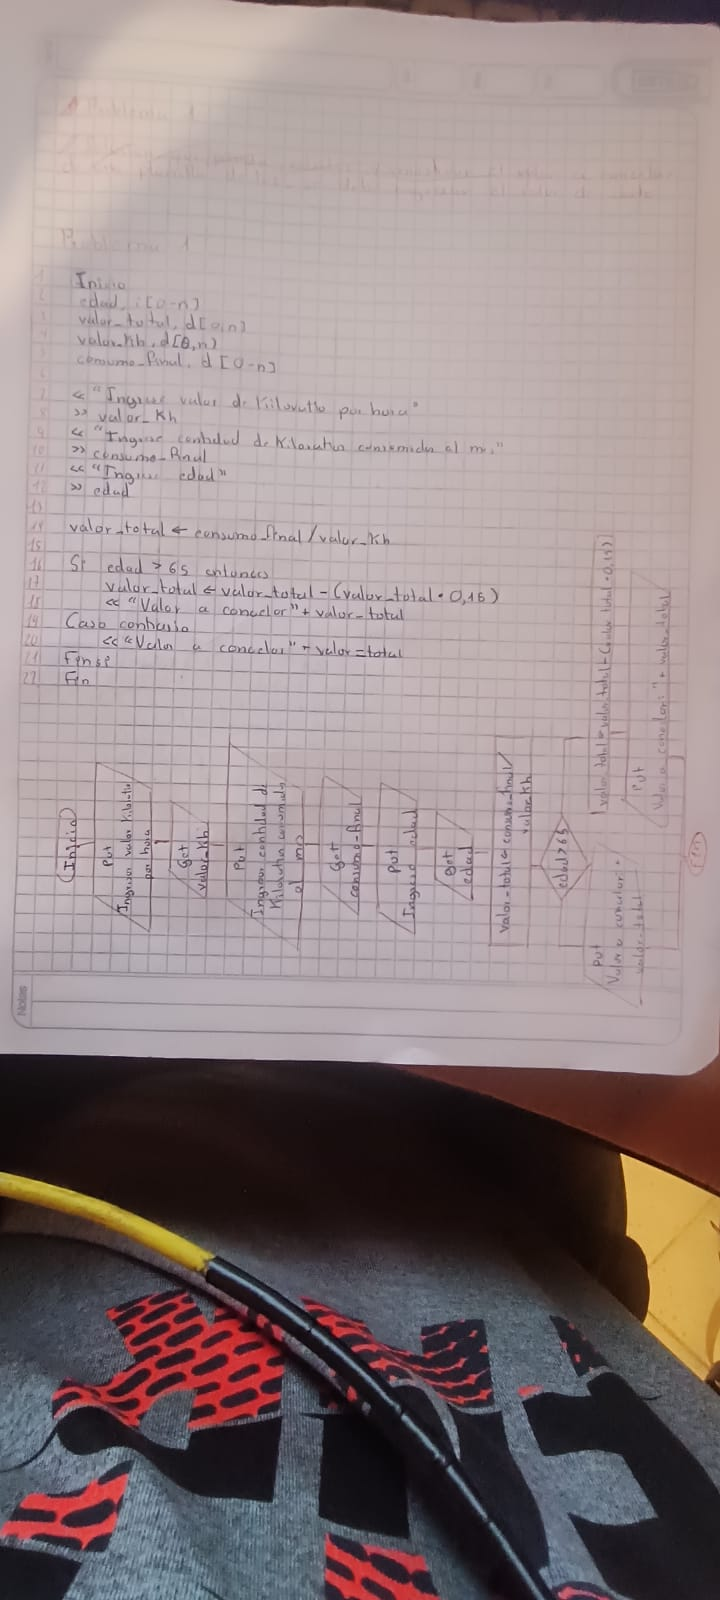 Problema 1
1 Inicio
2 edad, i[0-n]
3 valor_total, d[0,n]
4 valor_Kh, d[0,n]
5 consumo_final, d [0-n]
6
7 << "Ingrese valor de Kilovatio por hora"
8 >> valor_Kh
9 << "Ingrese cantidad de Kilovatios consumidos al mes"
10 >> consumo_final
11 << "Ingrese edad"
12 >> edad
13
14 valor_total ← consumo_final/valor_Kh
15
16 Si edad > 65 entonces
17 valor_total ← valor_total - (valor_total * 0,15)
18 << "Valor a cancelar" + valor_total
19 Caso contrario
20 << "Valor a cancelar" + valor_total
21 Finsi
22 Fin
Inicio
Put
Ingresar valor Kilovatio
por hora
Get
valor_Kh
Put
Ingresar cantidad de
Kilovatios consumidos
al mes
Get
consumo-final
Put
Ingrese edad
Get
edad
valor-total ← consumo-final/
valor Kh
edad > 65
valor_total ← valor_total - (valor total * 0,15)
Put
Valor a cancelar: " + valor_total
Put
Valor a cancelar: +
valor_total
Fin
Notas